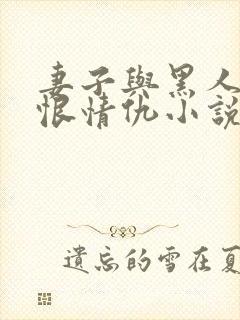 妻子與黑人
恨情仇小說
遺忘的雪在夏